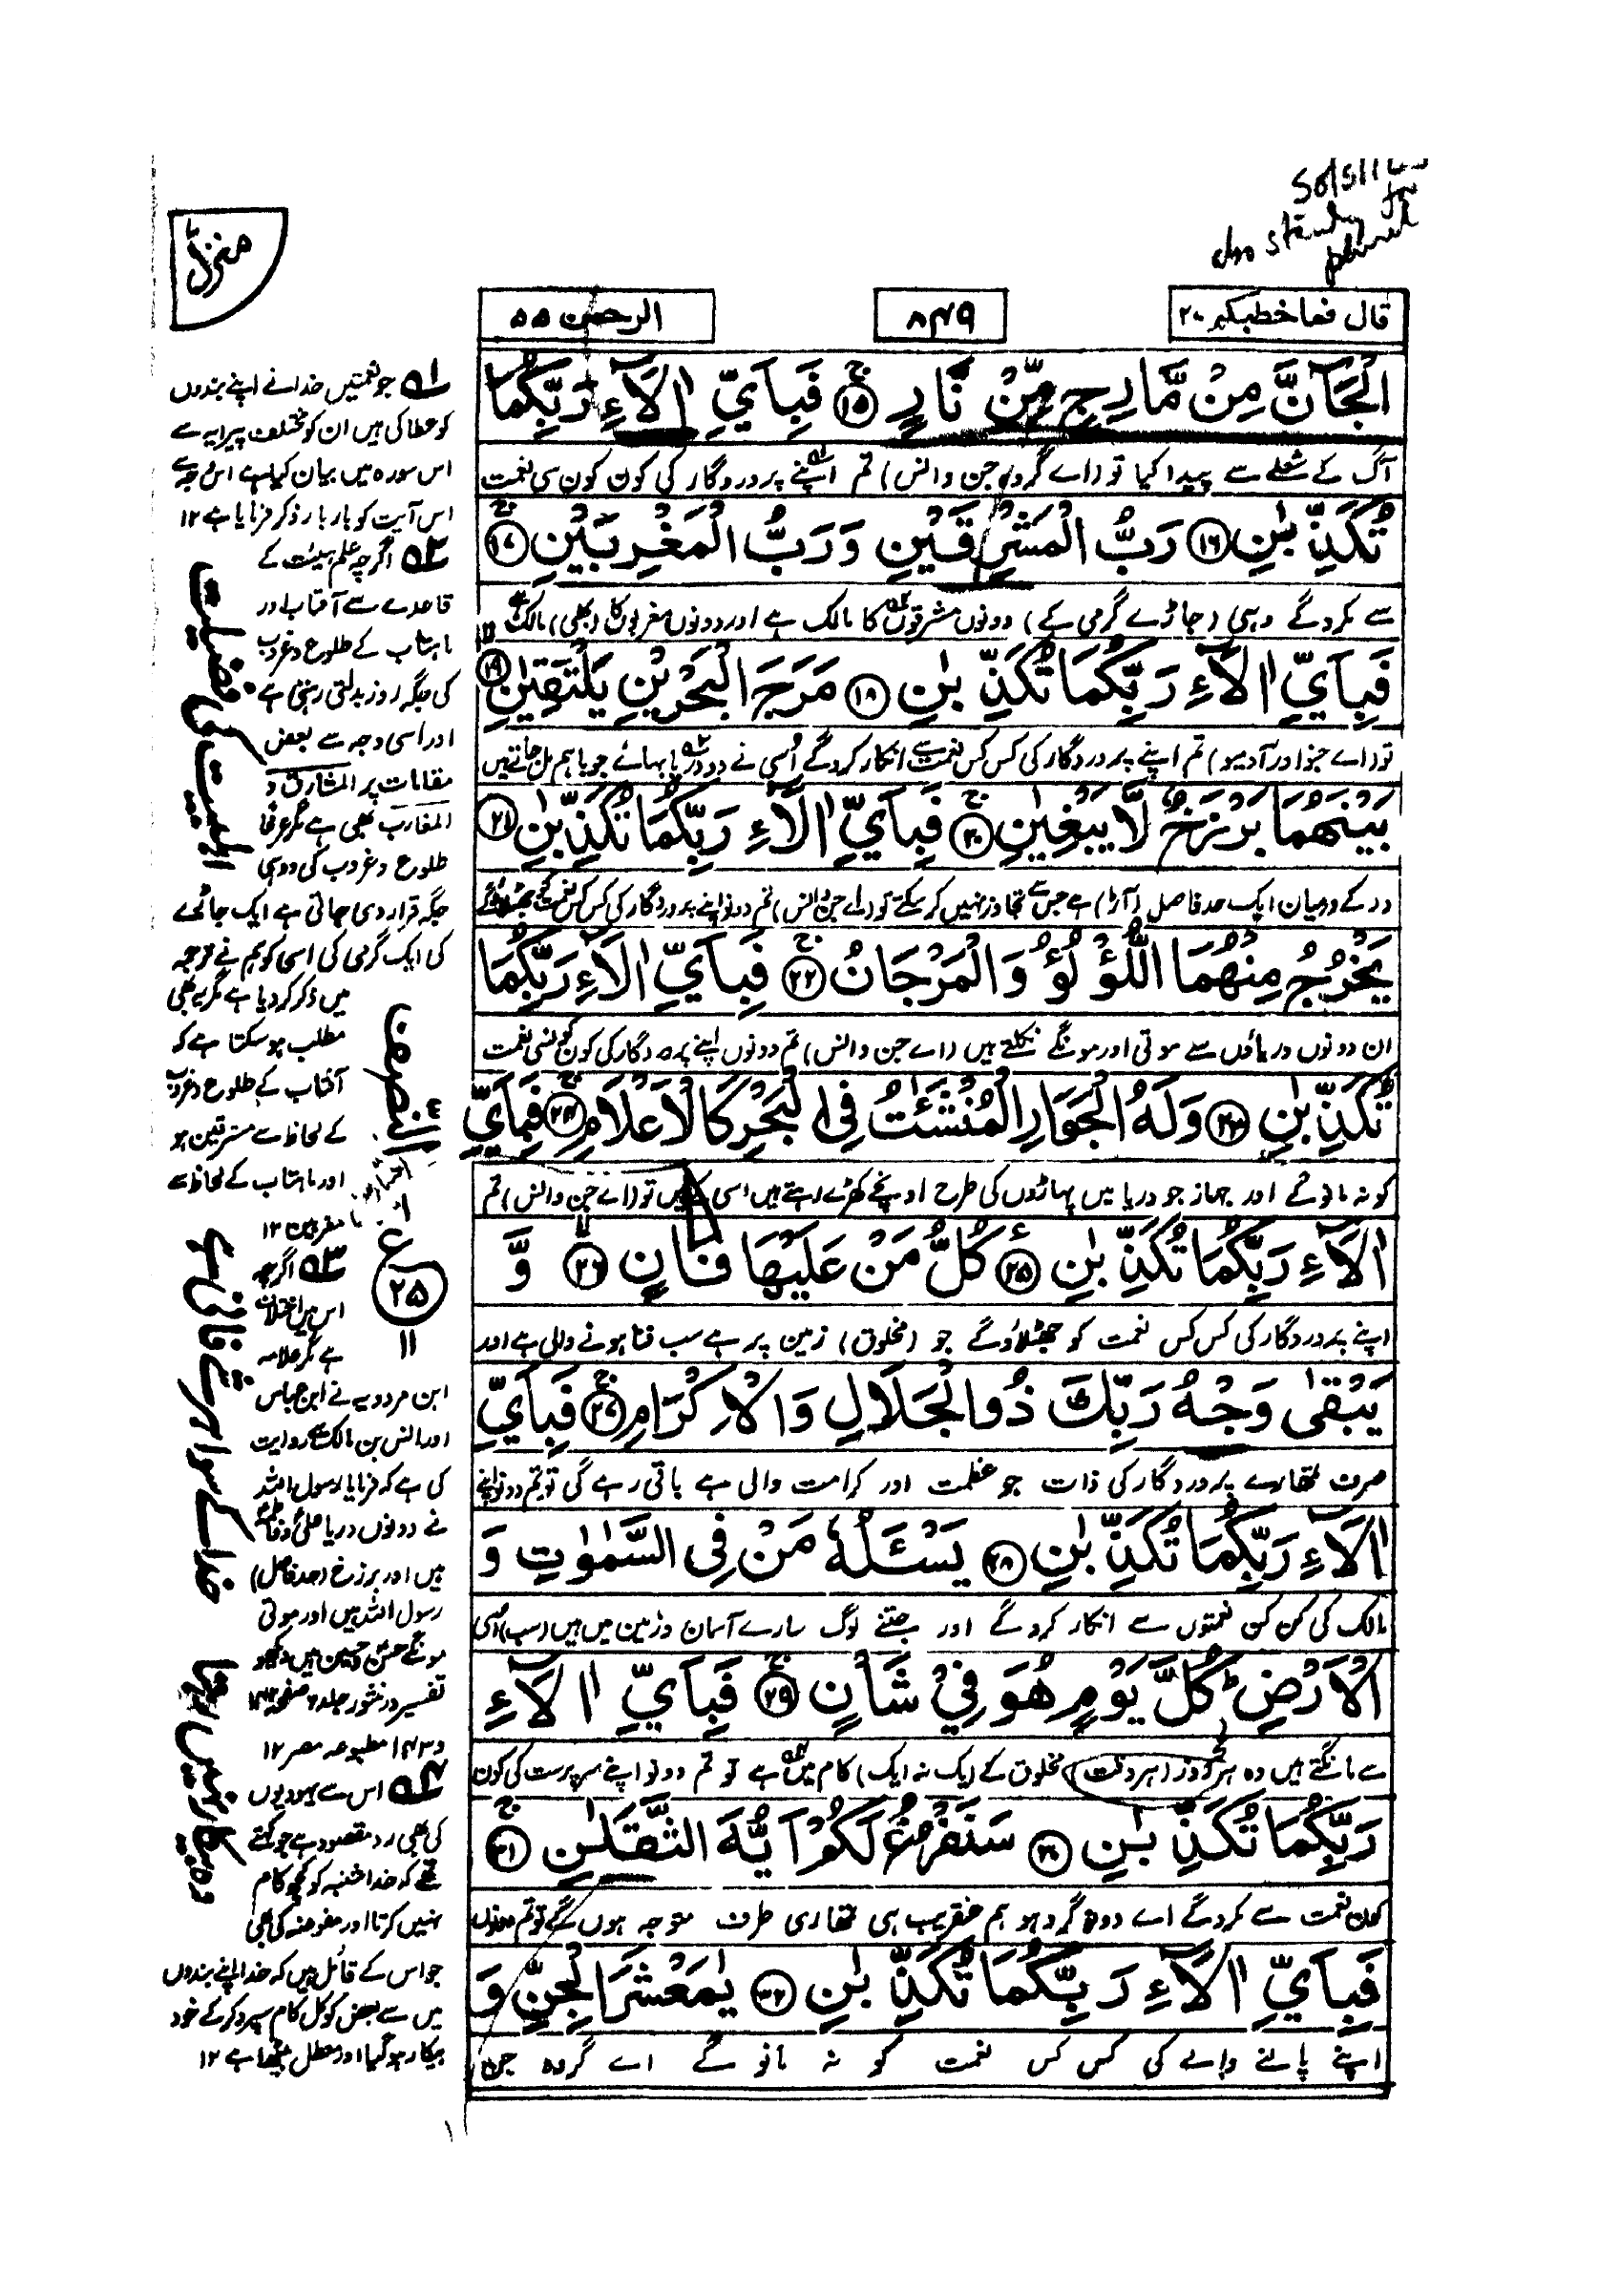 منزل
قال فما خطبكم ٢٧
٨٤٩
الرحمٰن ۵۵
الْجَآنَّ مِنْ مَّارِجٍ مِّنْ نَّارٍ ۝١٥ فَبِاَيِّ اٰلَآءِ رَبِّكُمَا
آگ کے شعلے سے پیدا کیا تو (اے گروہ جن و انس) تم اپنے پروردگار کی کون کون سی نعمت
تُكَذِّبٰنِ ۝١٦ رَبُّ الْمَشْرِقَيْنِ وَرَبُّ الْمَغْرِبَيْنِ ۝١٧
سے مکرو گے وہی (جاڑے گرمی کے) دونوں مشرقوں کا مالک ہے اور دونوں مغربوں کا (بھی) مالک ہے
فَبِاَيِّ اٰلَآءِ رَبِّكُمَا تُكَذِّبٰنِ ۝١٨ مَرَجَ الْبَحْرَيْنِ يَلْتَقِيٰنِ ۝١٩
تو (اے جنو اور آدمیو) تم اپنے پروردگار کی کس کس نعمت سے انکار کرو گے اُسی نے دو دریا بہائے جو باہم مل جاتے ہیں
بَيْنَهُمَا بَرْزَخٌ لَّا يَبْغِيٰنِ ۝٢٠ فَبِاَيِّ اٰلَآءِ رَبِّكُمَا تُكَذِّبٰنِ ۝٢١
دو کے درمیان ایک حد فاصل (آڑ) ہے جس سے تجاوز نہیں کر سکتے تو (اے جن و انس) تم دونو اپنے پروردگار کی کس کس نعمت کو جھٹلاؤ گے
يَخْرُجُ مِنْهُمَا اللُّؤْلُؤُ وَالْمَرْجَانُ ۝٢٢ فَبِاَيِّ اٰلَآءِ رَبِّكُمَا
ان دونوں دریاؤں سے موتی اور مونگے نکلتے ہیں (اے جن و انس) تم دونوں اپنے پروردگار کی کون کونسی نعمت
تُكَذِّبٰنِ ۝٢٣ وَلَهُ الْجَوَارِ الْمُنْشَئٰتُ فِي الْبَحْرِ كَالْاَعْلَامِ ۝٢٤ فَبِاَيِّ
کو نہ مانو گے اور جہاز جو دریا میں پہاڑوں کی طرح اونچے کھڑے رہتے ہیں اسی کے ہیں تو (اے جن و انس) تم
اٰلَآءِ رَبِّكُمَا تُكَذِّبٰنِ ۝٢٥ كُلُّ مَنْ عَلَيْهَا فَانٍ ۝٢٦ وَّ
اپنے پروردگار کی کس کس نعمت کو جھٹلاؤ گے جو (مخلوق) زمین پر ہے سب فنا ہونے والی ہے اور
يَبْقٰى وَجْهُ رَبِّكَ ذُو الْجَلَالِ وَالْاِكْرَامِ ۝٢٧ فَبِاَيِّ
صرف تمھارے پروردگار کی ذات جو عظمت اور کرامت والی ہے باقی رہے گی تو تم دونو اپنے
اٰلَآءِ رَبِّكُمَا تُكَذِّبٰنِ ۝٢٨ يَسْئَلُهٗ مَنْ فِي السَّمٰوٰتِ وَ
مالک کی کن کن نعمتوں سے انکار کرو گے اور جتنے لوگ سارے آسمان و زمین میں ہیں (سب) اسی
الْاَرْضِ ۭ كُلَّ يَوْمٍ هُوَ فِيْ شَاْنٍ ۝٢٩ فَبِاَيِّ اٰلَآءِ
سے مانگتے ہیں وہ ہر روز (ہر وقت) مخلوق کے (ایک نہ ایک) کام میں ہے تو تم دونو اپنے سرپرست کی کون
رَبِّكُمَا تُكَذِّبٰنِ ۝٣٠ سَنَفْرُغُ لَكُمْ اَيُّهَ الثَّقَلٰنِ ۝٣١
کون نعمت سے مکرو گے اے دونو گروہو ہم عنقریب ہی تمھاری طرف متوجہ ہوں گے تو تم دونوں
فَبِاَيِّ اٰلَآءِ رَبِّكُمَا تُكَذِّبٰنِ ۝٣٢ يٰمَعْشَرَ الْجِنِّ وَ
اپنے پالنے والے کی کس کس نعمت کو نہ مانو گے اے گروہ جن
۵۱ جو نعمتیں خدا نے اپنے بندوں
کو عطا کی ہیں ان کو مختلف پیرایہ سے
اس سورہ میں بیان کیا ہے اس وجہ سے
اس آیت کو بار بار ذکر فرمایا ہے ۱۲
۵۲ اگرچہ علم ہیئت کے
قاعدے سے آفتاب اور
ماہتاب کے طلوع و غروب
کی جگہ روز بدلتی رہتی ہے
اور اسی وجہ سے بعض
مقامات پر المشارق و
المغارب بھی ہے مگر عرفا
طلوع و غروب کی دو ہی
جگہ قرار دی جاتی ہے ایک جاڑے
کی ایک گرمی کی اسی کو ہم نے ترجمہ
میں ذکر کر دیا ہے مگر یہ بھی
مطلب ہو سکتا ہے کہ
آفتاب کے طلوع و غروب
کے لحاظ سے مشرقین ہو
اور ماہتاب کے لحاظ سے
مغربین ۱۲
۵۳ اگرچہ
اس میں اختلاف
ہے مگر علامہ
ابن مردویہ نے ابن عباس
اور انس بن مالک سے روایت
کی ہے کہ فرمایا رسول اللہ
نے دونوں دریا علیؑ و فاطمہؑ
ہیں اور برزخ (حد فاصل)
رسول اللہ ہیں اور موتی
مونگے حسنؑ و حسینؑ ہیں دیکھو
تفسیر در منثور جلد ۶ صفحہ ۱۴۲
و ۱۴۳ مطبوعہ مصر ۱۲
۵۴ اس سے یہودیوں
کی بھی رد مقصود ہے جو کہتے
تھے کہ خدا شنبہ کو کچھ کام
نہیں کرتا اور مفوضہ کی بھی
جو اس کے قائل ہیں کہ خدا اپنے بندوں
میں سے بعض کو کل کام سپرد کر کے خود
بیکار ہو گیا اور معطل بیٹھا ہے ۱۲
اہلبیت کی فضیلت
ع
٢٥
١١
خدا کے سوا ہر شے فانی ہے
وہ بیکار نہیں رہتا